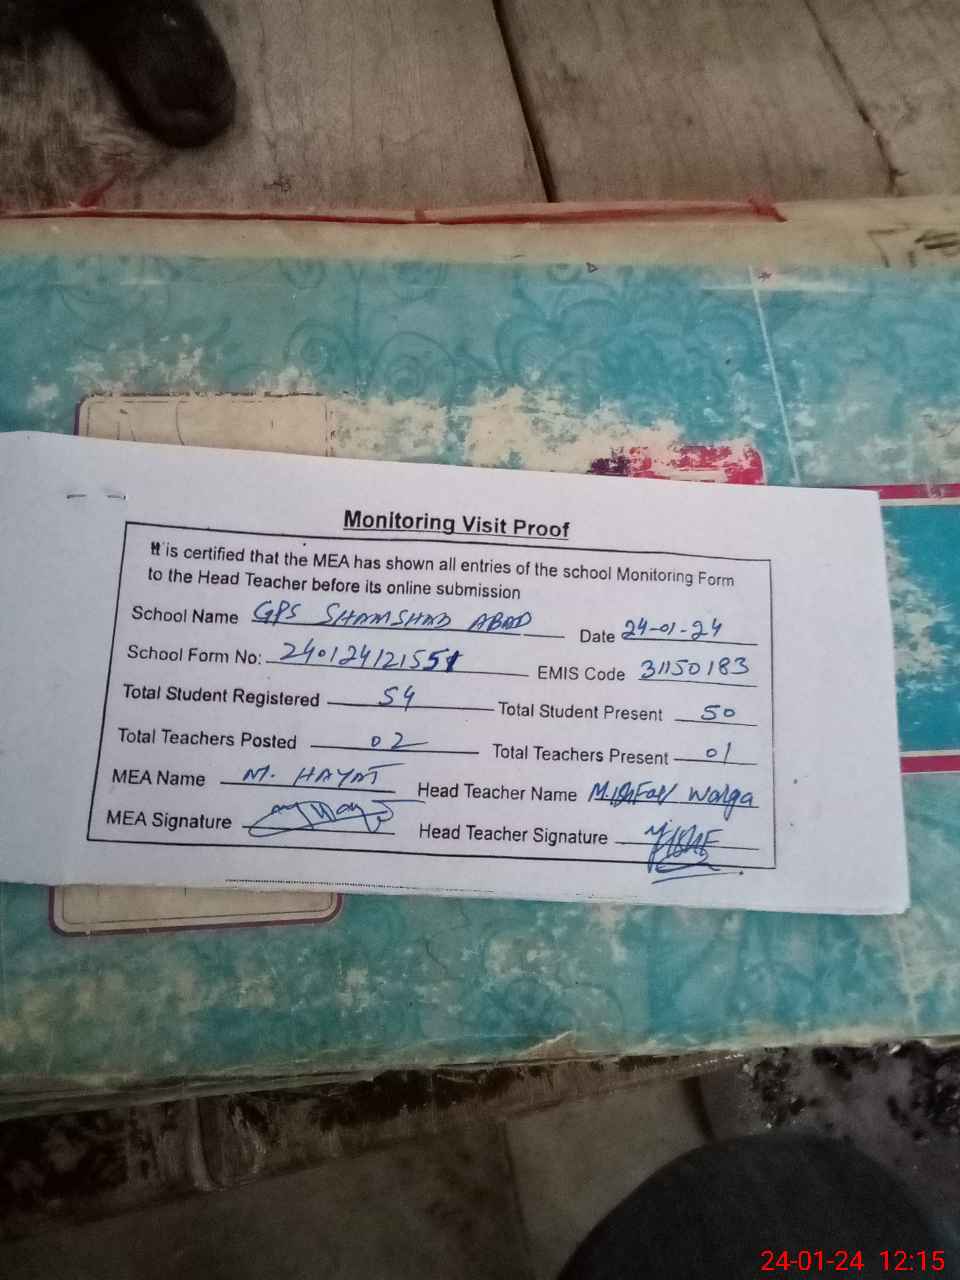 Monitoring Visit Proof
It is certified that the MEA has shown all entries of the school Monitoring Form
to the Head Teacher before its online submission
School Name GPS SHAMSHAD ABAD Date 24-01-24
School Form No: 240124121551 EMIS Code 31150183
Total Student Registered 54 Total Student Present 50
Total Teachers Posted 02 Total Teachers Present 01
MEA Name M. HAYAT Head Teacher Name
MEA Signature Head Teacher Signature
24-01-24 12:15